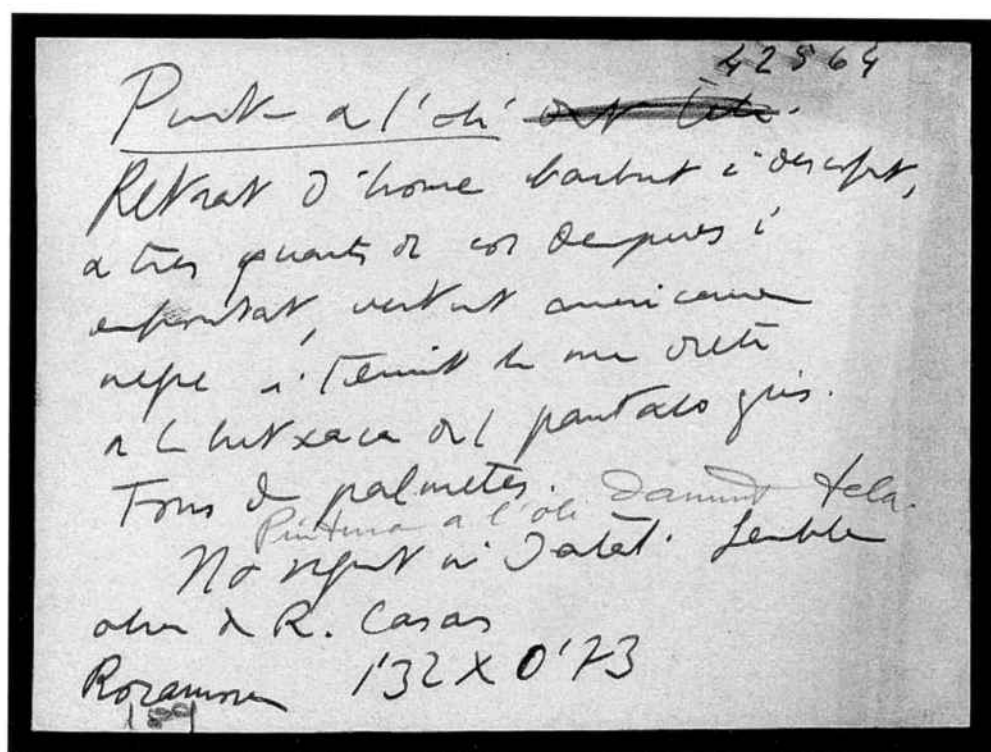 42564
Pint a l'oli
Retrat d'home barbut i
a tres quarts de cos dempeus i
vestint americana
negre i tenint la ma dreta
a la butxaca del pantalo gris.
Fons de palmetes.
Pintura a l'oli damunt tela.
No signat ni datat. Sembla
obra de R. Casas
1'32 X 0'73